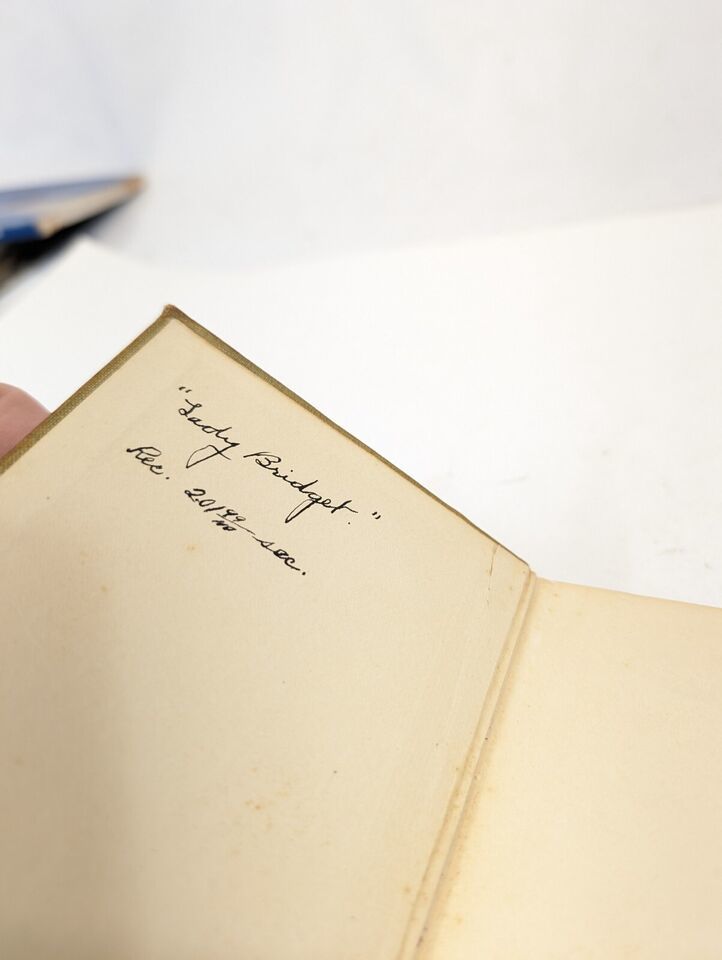 "Lady Bridget."
Rec. 20149/100 sec.